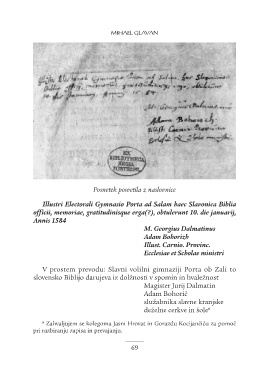 MIHAEL GLAVAN
Illustri Electorali Gymnasio Porta ad Salam
EX BIBLIOTHECA
Posnetek posvetila z naslovnice
Illustri Electorali Gymnasio Porta ad Salam haec Slavonica Biblia
officii, memoriae, gratitudinisque erga(?), obtulerunt 10. die januarij,
Annis 1584
M. Georgius Dalmatinus
Adam Bohorizh
Illust. Carnio. Provinc.
Ecclesiae et Scholae ministri
V prostem prevodu: Slavni volilni gimnaziji Porta ob Zali to
slovensko Biblijo darujeva iz dolžnosti v spomin in hvaležnost
Magister Jurij Dalmatin
Adam Bohorič
služabnika slavne kranjske
deželne cerkve in šole*
* Zahvaljujem se kolegoma Jasni Hrovat in Gorazdu Kocijančiču za pomoč
pri razbiranju zapisa in prevajanju.
69